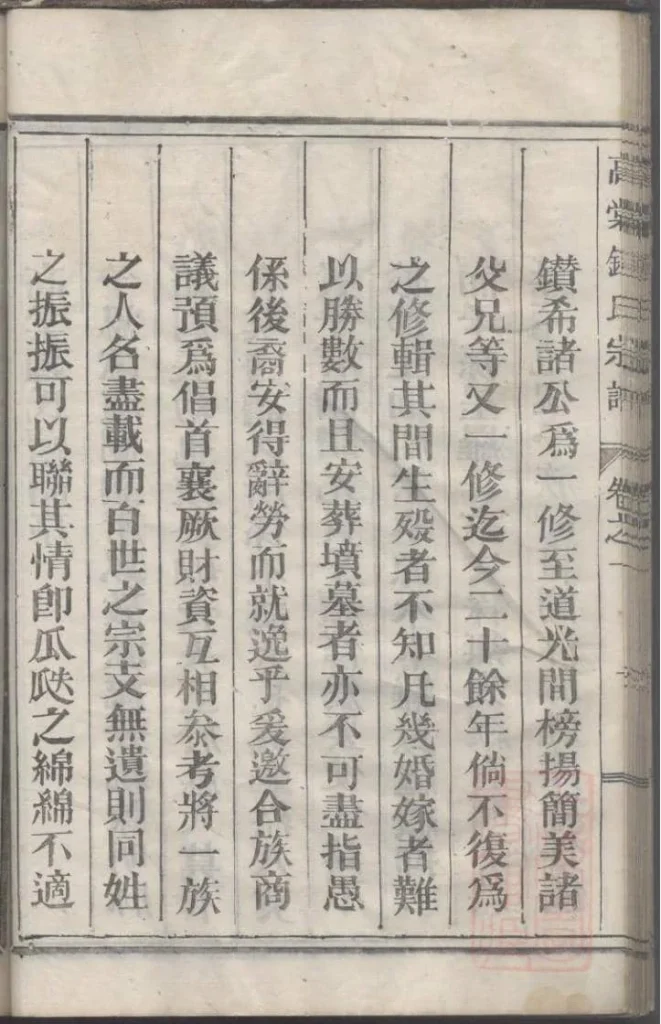 鑽希諸公爲一修至道光間榜揚簡美諸
父兄等又一修迄今二十餘年倘不復爲
之修輯其間生殁者不知凡幾婚嫁者難
以勝數而且安葬墳墓者亦不可盡指愚
係後裔安得辭勞而就逸乎爰邀合族商
議預爲倡首襄厥財資互相叅考將一族
之人名盡載而百世之宗支無遺則同姓
之振振可以聯其情卽瓜瓞之綿綿不適